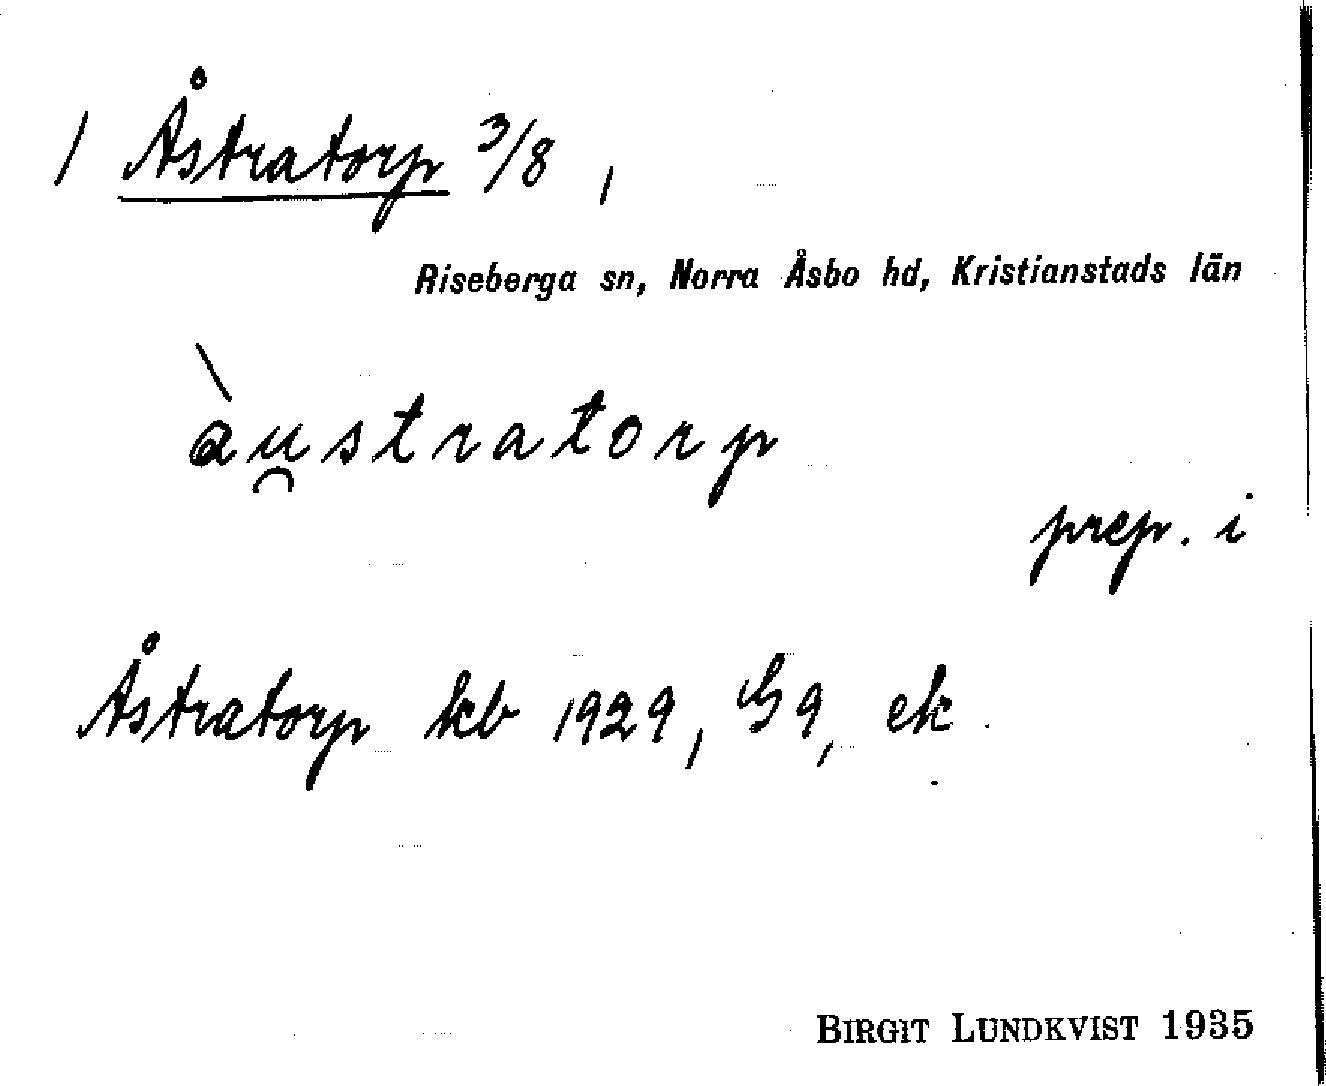 / Åstratorp 3/8 ,
Riseberga sn, Norra Åsbo hd, Kristianstads län
àu̯stratorp
prep. i
Åstratorp kb 1929, G9, ek
BIRGIT LUNDKVIST 1935